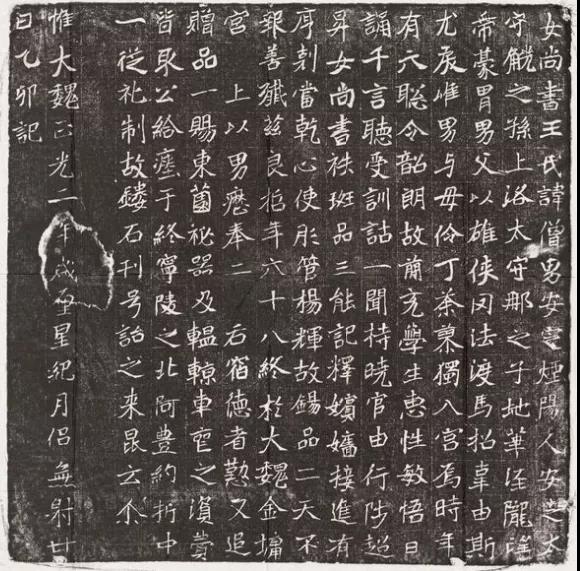 女尚書王氏諱僧男安定煙陽人安定太
守覬之孫上洛太守那之子地華涇隴望
帝豪胄男父以雄俠罔法渡馬招辜由斯
尤戾唯男与母伶丁荼蓼獨入宮焉時年
有六聰令韶朗故簡充學生惠性敏悟日
誦千言聽受訓詁一聞持曉官由行陟超
昇女尚書秩班品三能記釋嬪嬙接進有
序剋當乾心使彤管揚輝故錫品二天不
報善殲茲良哲年六十八終於大魏金墉
宮 上以男歷奉二 后宿德者勤又追
贈品一賜東園祕器及轀輬車窆之資費
皆取公給瘞于終寧陵之北阿豊約折中
一從礼制故鏤石刊号詒之来昆云尒
惟大魏正光二年歲在星紀月侶無射廿
日乙卯記